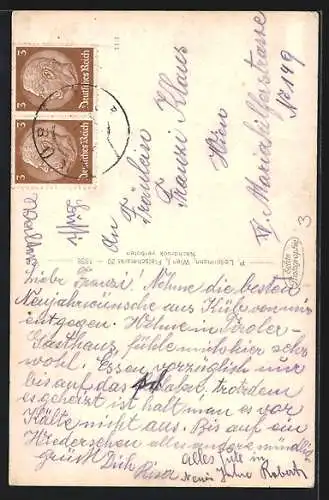 3
Deutsches Reich
3
Deutsches Reich
An
Fräulein
Franzi Klaus
Wien
VI. Mariahilferstrasse
No 149
P. Ledermann, Wien I, Fleischmarkt 20 — 1936
Nachdruck verboten
Echte Photographie
3
Liebe Franzi! Nehme die besten
Neujahrwünsche aus Kühe von mir
entgegen. Wohne im Tiroler-
Gasthaus, fühle mich hier sehr
wohl. Essen vorzüglich nur
bis auf das Salz. trotzdem
es geheizt ist hält man es vor
Kälte nicht aus. Bis auf ein
Wiedersehen alles andere mündlich
grüsst Dich Risa
alles Gute im
Neuen Jahre Robert